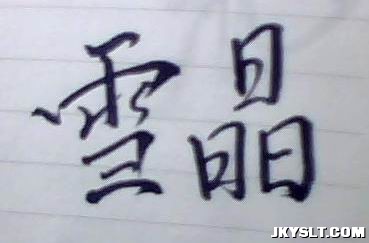 雪晶
JKYSLT.COM